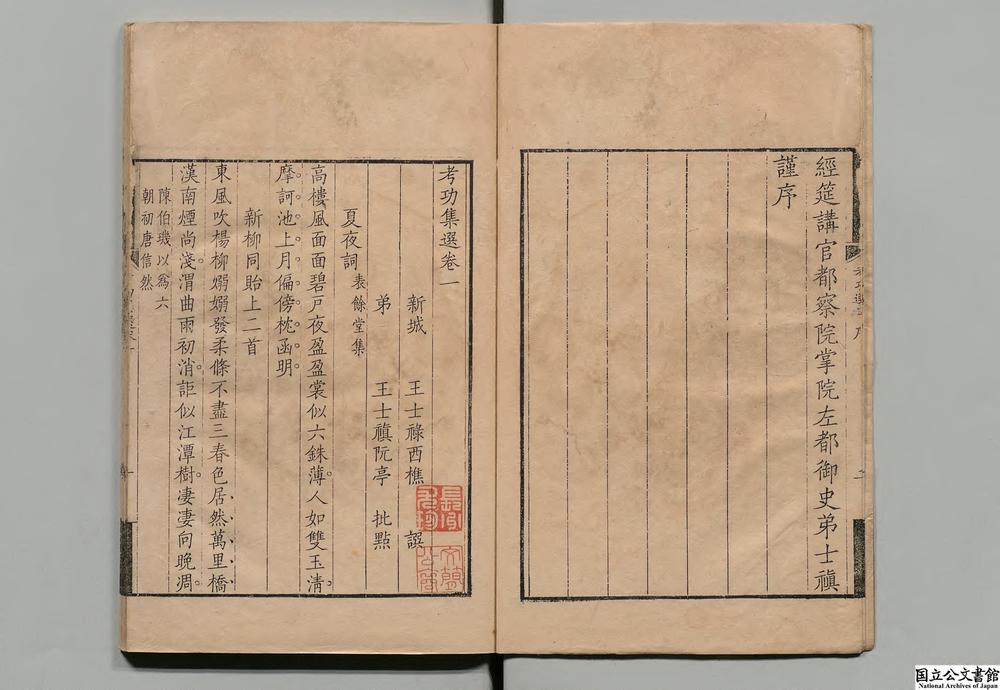 經筵講官都察院掌院左都御史弟士禛
謹序
考功集選卷一
新城 王士祿西樵 譔
弟 王士禛阮亭 批點
夏夜詞 表餘堂集
高樓風面面碧戸夜盈盈裳似六銖薄人如雙玉淸
摩訶池上月偏傍枕函明
新柳同貽上二首
東風吹楊柳嫋嫋發柔條不盡三春色居然萬里橋
漢南煙尚淺渭曲雨初消詎似江潭樹凄凄向晩凋
陳伯璣以爲六
朝初唐信然
国立公文書館
National Archives of Japan